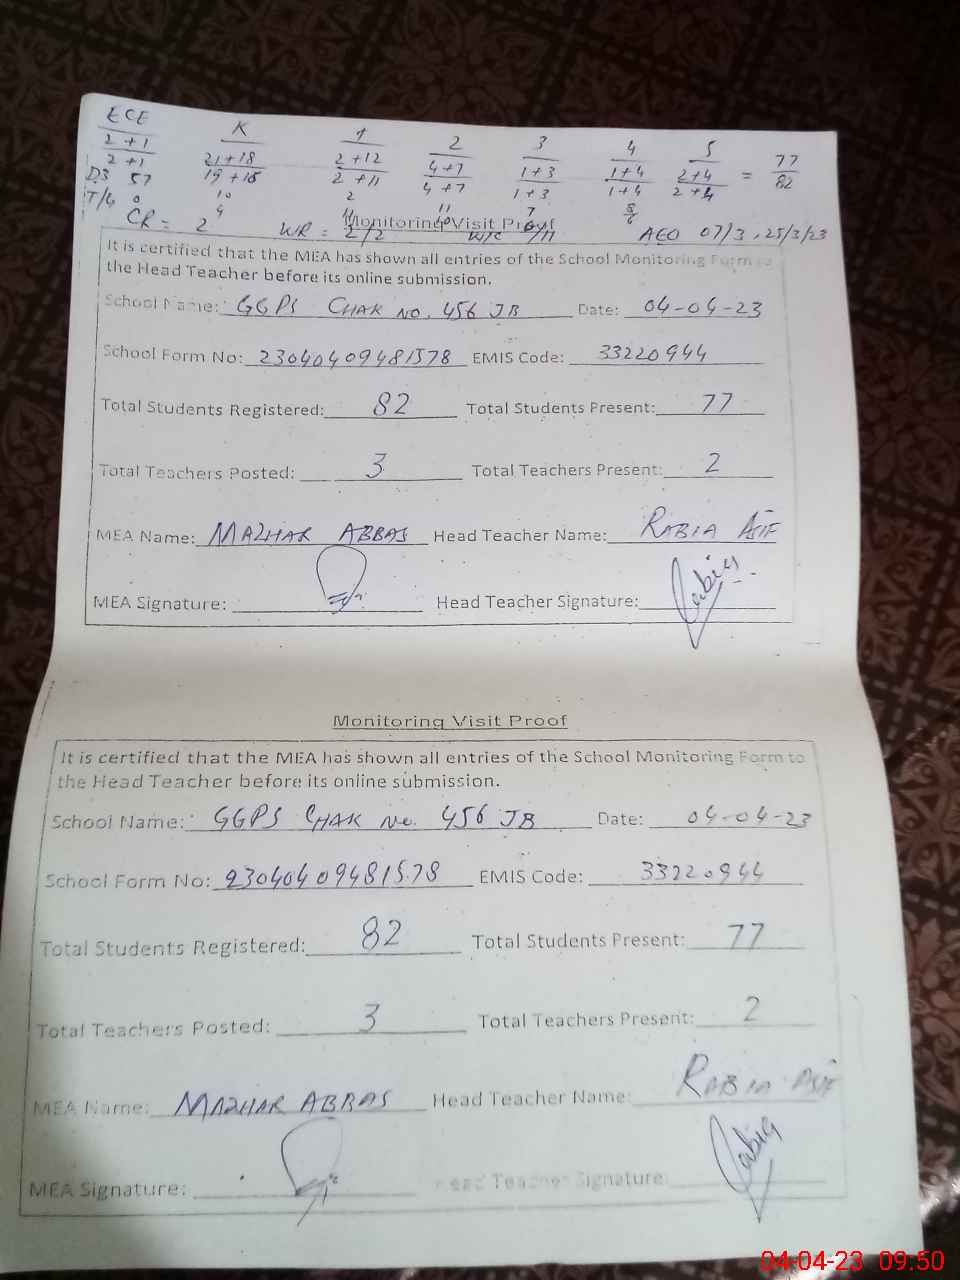 ECE K 1 2 3 4 5
2+1 21+18 2+12 4+7 1+3 1+4 2+4 77
2+1 19+18 2+11 4+7 1+3 1+4 2+4 = 82
D3 57 10 2 11 7
T/4 0 4
CR = 2 WR = 2/2 AEO 07/3, 25/3/23
Monitoring Visit Proof
It is certified that the MEA has shown all entries of the School Monitoring Form to
the Head Teacher before its online submission.
School Name: GGPS CHAK NO. 456 JB Date: 04-04-23
School Form No: 23040409481578 EMIS Code: 33220944
Total Students Registered: 82 Total Students Present: 77
Total Teachers Posted: 3 Total Teachers Present: 2
MEA Name: MAZHAR ABBAS Head Teacher Name: RABIA ASIF
MEA Signature: Head Teacher Signature: Rabia
Monitoring Visit Proof
It is certified that the MEA has shown all entries of the School Monitoring Form to
the Head Teacher before its online submission.
School Name: GGPS CHAK No. 456 JB Date: 04-04-23
School Form No: 23040409481578 EMIS Code: 33220944
Total Students Registered: 82 Total Students Present: 77
Total Teachers Posted: 3 Total Teachers Present: 2
MEA Name: MAZHAR ABBAS Head Teacher Name: RABIA ASIF
MEA Signature: Head Teacher Signature: Rabia
04-04-23 09:50